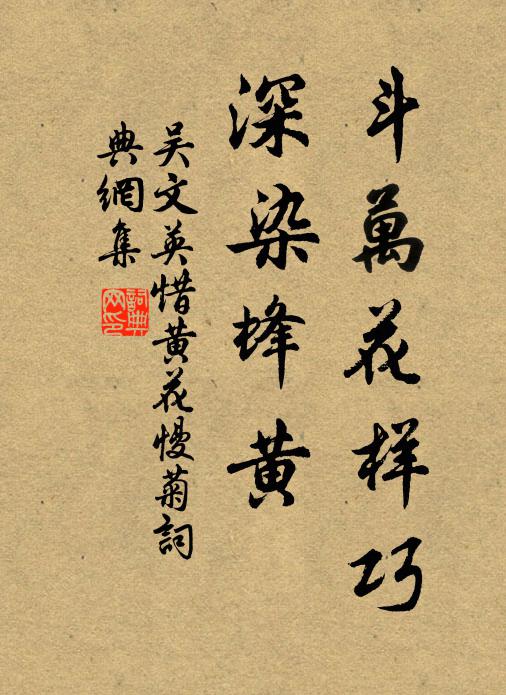 斗萬花样巧
深染蜂黄
吴文英惜黄花慢菊詞
典網集
詞典網印